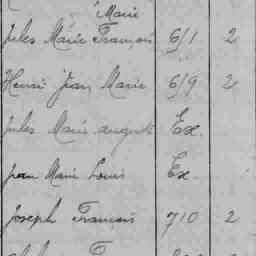 Marie
Jules Marie François 6/1 2
Henri Jean Marie 6/9 2
Jules Marie auguste Ex.
Jean Marie Louis Ex.
Joseph François 710 2